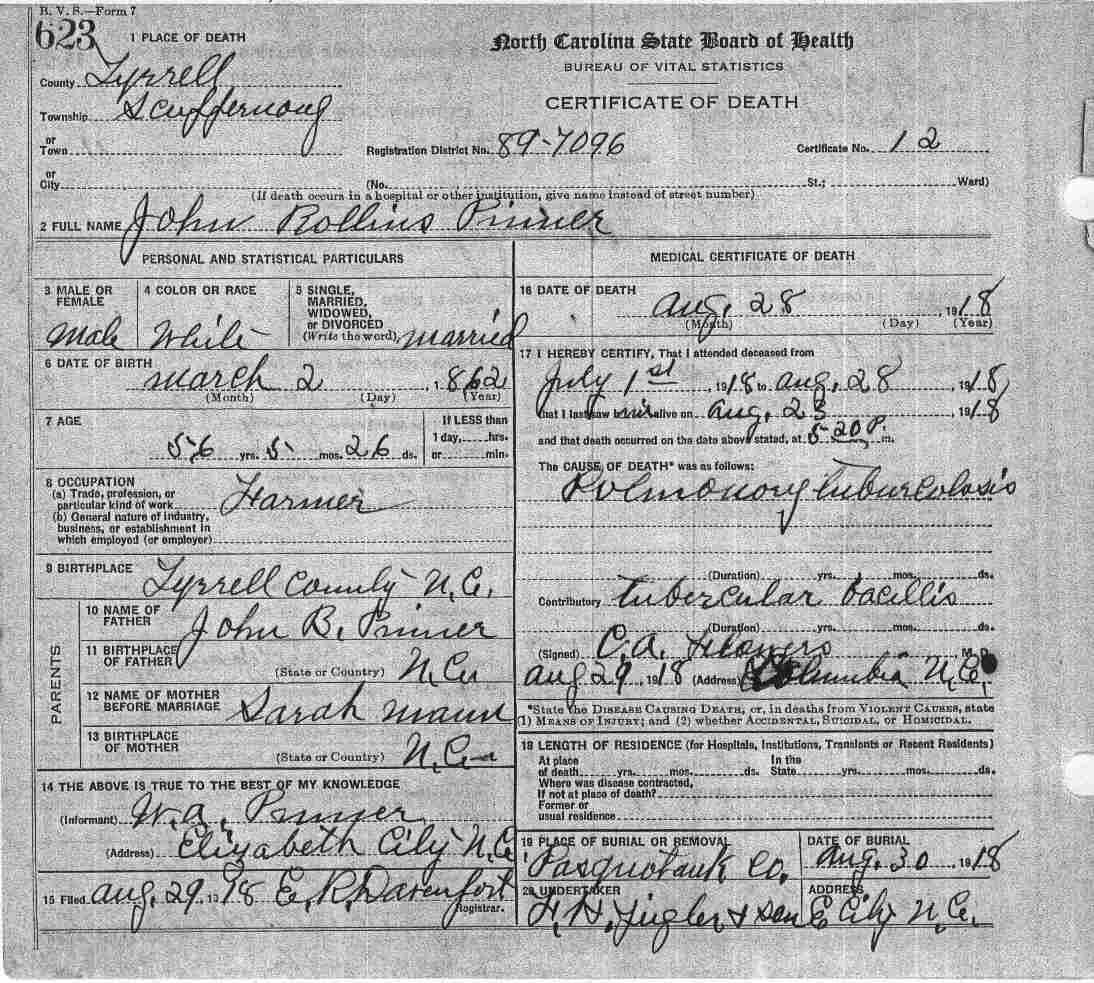 B. V. S.—Form 7
623
1 PLACE OF DEATH
North Carolina State Board of Health
BUREAU OF VITAL STATISTICS
CERTIFICATE OF DEATH
County Tyrrell
Township Scuffernong
or Town
Registration District No. 89-7096
Certificate No. 12
or City
(No. St.; Ward)
(If death occurs in a hospital or other institution, give name instead of street number)
2 FULL NAME John Rollins Pinner
PERSONAL AND STATISTICAL PARTICULARS
3 MALE OR FEMALE
male
4 COLOR OR RACE
White
5 SINGLE, MARRIED, WIDOWED, or DIVORCED
(Write the word) married
6 DATE OF BIRTH
march 2, 1862
(Month) (Day) (Year)
7 AGE
56 yrs. 5 mos. 26 ds.
If LESS than
1 day, hrs.
or min.
8 OCCUPATION
(a) Trade, profession, or
particular kind of work Farmer
(b) General nature of industry,
business, or establishment in
which employed (or employer)
9 BIRTHPLACE
Tyrrell County N.C.
PARENTS
10 NAME OF FATHER
John B. Pinner
11 BIRTHPLACE OF FATHER
(State or Country) N.C.
12 NAME OF MOTHER BEFORE MARRIAGE
Sarah Mann
13 BIRTHPLACE OF MOTHER
(State or Country) N.C.
14 THE ABOVE IS TRUE TO THE BEST OF MY KNOWLEDGE
(Informant) W.A. Pinner
(Address) Elizabeth City N.C
15 Filed aug. 29 1918 E. R. Davenport
Registrar.
MEDICAL CERTIFICATE OF DEATH
16 DATE OF DEATH
aug. 28, 1918
(Month) (Day) (Year)
17 I HEREBY CERTIFY, That I attended deceased from
July 1st, 1918 to aug. 28, 1918,
that I last saw him alive on aug. 23, 1918
and that death occurred on the date above stated, at 5-20 P. m.
The CAUSE OF DEATH* was as follows:
Polmonory tuburcolosis
(Duration) yrs. mos. ds.
Contributory tubercular bacillis
(Duration) yrs. mos. ds.
(Signed) C.A. Flowers, M. D.
aug 29, 1918 (Address) Columbia N.C.
*State the DISEASE CAUSING DEATH, or, in deaths from VIOLENT CAUSES, state
(1) MEANS OF INJURY; and (2) whether ACCIDENTAL, SUICIDAL, or HOMICIDAL.
18 LENGTH OF RESIDENCE (for Hospitals, Institutions, Transients or Recent Residents)
At place of death yrs. mos. ds. In the State yrs. mos. ds.
Where was disease contracted,
If not at place of death?
Former or
usual residence
19 PLACE OF BURIAL OR REMOVAL
Pasquotank Co.
DATE OF BURIAL
aug. 30 1918
20 UNDERTAKER
ADDRESS
& Son E City N.C.